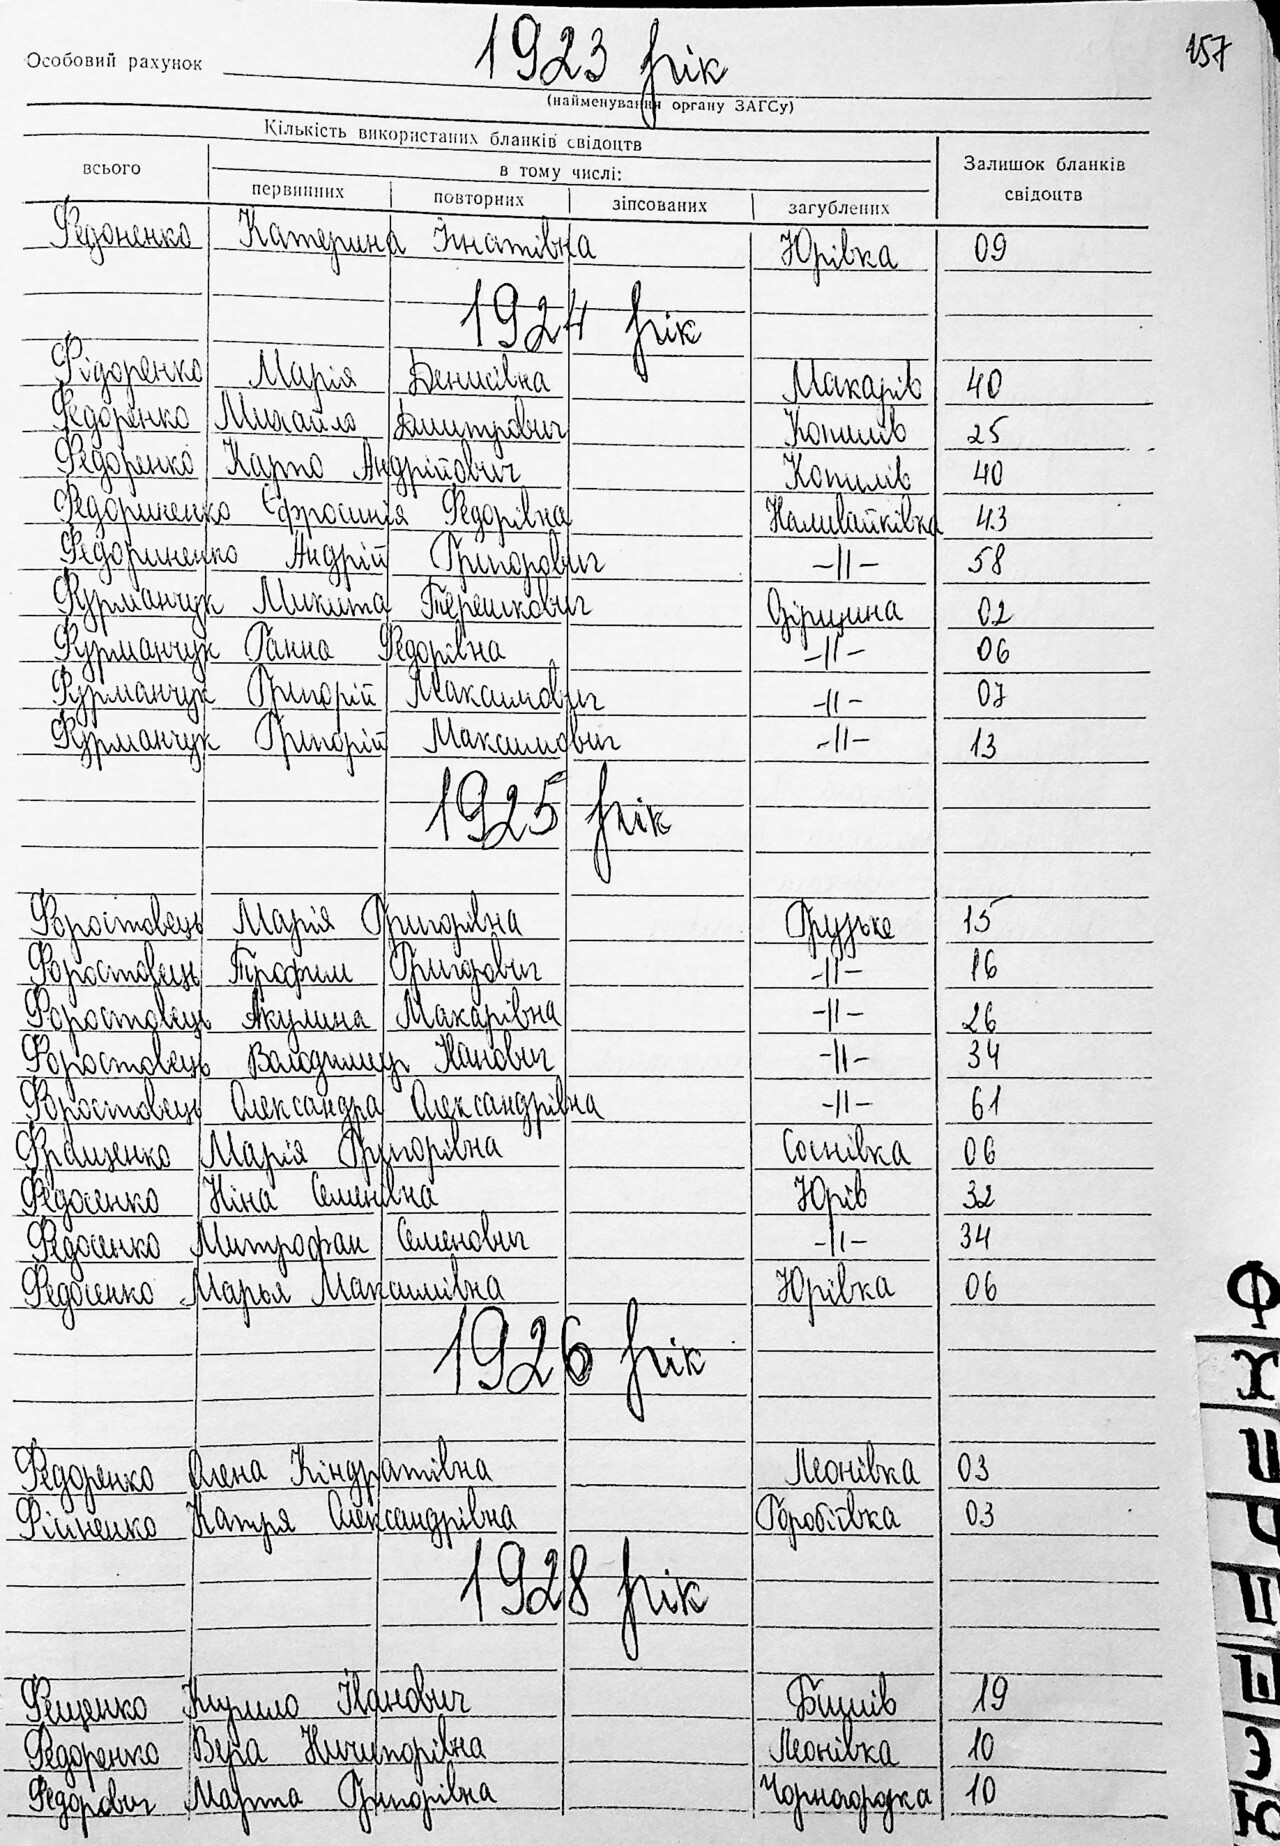 157
1923 рік
Особовий рахунок
(найменування органу ЗАГСу)
Кількість використаних бланків свідоцтв
всього
в тому числі:
Залишок бланків свідоцтв
первинних повторних зіпсованих загублених
Федоненко Катерина Ігнатівна Юрівка 09
1924 рік
Фідоренко Марія Денисівна Макарів 40
Федоренко Михайло Дмитрович Копилів 25
Федоренко Карпо Андрійович Копилів 40
Федориненко Єфросинія Федорівна Наливайківка 43
Федориненко Андрій Григорович -||- 58
Фурманчук Микита Терешкович 02
Фурманчук Ганна Федорівна -||- 06
Фурманчук Григорій Максимович -||- 07
Фурманчук Григорій Максимович -||- 13
1925 рік
Форостовець Марія Григорівна Грузьке 15
Форостовець Трофим Григорович -||- 16
Форостовець Акулина Макарівна -||- 26
Форостовець Володимир Іванович -||- 34
Форостовець Олександра Олександрівна -||- 61
Фращенко Марія Григорівна Соснівка 06
Федосенко Ніна Семенівна Юрів 32
Федосенко Митрофан Семенович -||- 34
Федосенко Марья Максимівна Юрівка 06
1926 рік
Федоренко Олена Кіндратівна Леонівка 03
Катря Олександрівна 03
1928 рік
Фещенко Кирило Іванович Бишів 19
Федоренко Вера Ничипорівна Леонівка 10
Федорович Марта Григорівна Чорногородка 10
Ф
Х
Ц